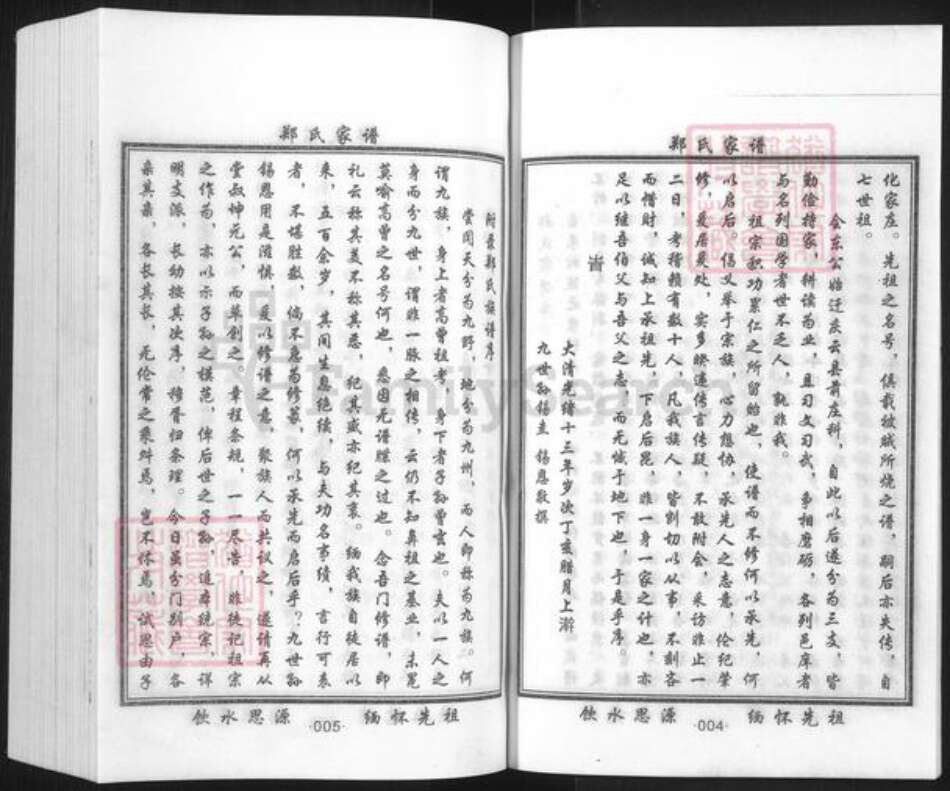 郑氏家谱
化家庄。先祖之名号，俱载被贼所烧之谱，嗣后亦失传，自
七世祖。
会东公始迁庆云县前庄科，自此以后遂分为三支，皆
勤俭持家，耕读为业，且习文习武，争相磨砺，各列邑庠者
与名列国学者世不乏人，孰非我
祖宗积功累仁之所留贻也，使谱而不修何以承先，何
以启后。倡义举于宗族，心力想协，承先人之志意，伦纪肇
修，爰居爰处，实多睽违传言传疑，不敢附会，采访非止一
二日，考稽赖有数十人，凡我族人，皆剀切以从事，不刻吝
而惜财，诚知上承祖先，下启后昆，非一身一家之计也，亦
足以继吾伯父与吾父之志，而无憾于地下也，于是乎序。
旹
大清光绪十三年岁次丁亥腊月上澣
九世孙锡圭 锡恩敬撰
饮水思源
·004·
缅怀先祖
郑氏家谱
附录郑氏族谱序
尝闻天分为九野，地分为九州，而人即称为九族。何
谓九族，身上者高曾祖考，身下者子孙曾玄也。夫以一人之
身而分九世，谓非一脉之相传，云仍不知鼻祖之基业，未冕
莫喻高曾之名号何也，悉因无谱牒之过也。念吾门修谱，即
礼云称其美不称其恶，纪其盛亦纪其衰。缅我族自徒居以
来，五百余岁，其间生息绝续，与夫功名事绩，言行可表
者，不堪胜数，倘不急为修葺，何以承先而启后乎？九世孙
锡恩用是滋惧，爰以修谱之意，聚族人而共议之，遂请再从
堂叔坤元公，而草创之。章程条规，一一尽告，非徒记祖宗
之作为，亦以示子孙之模范，俾后世之子孙，追本统宗，详
明支源，长幼按其次序，穆胥归条理。今日虽分门别户，各
亲其亲，各长其长，无伦常之乘舛焉，岂不休焉，试思由子
饮水思源
·005·
缅怀先祖
FamilySearch